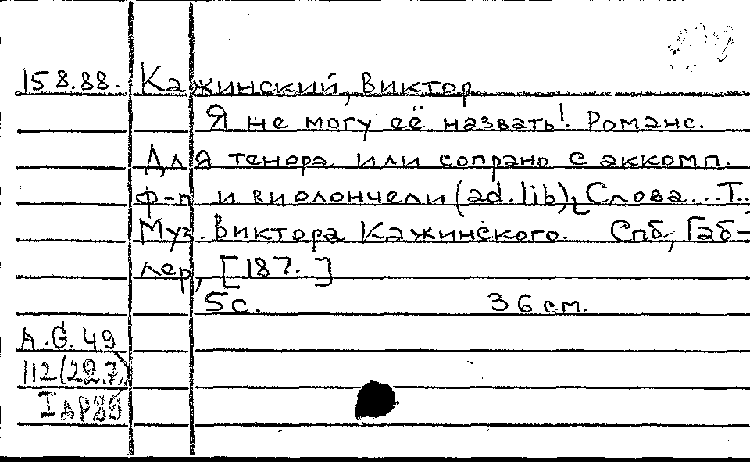 15.8.88. Кажинский, Виктор
Я не могу её назвать! Романс.
Для тенора или сопрано с аккомп.
ф-п и виолончели (ad.lib), Слова...Т..
Муз. Виктора Кажинского. Спб, Габ-
лер, [187. ]
5с. 36 см.
A.G. 49
112(22.7,